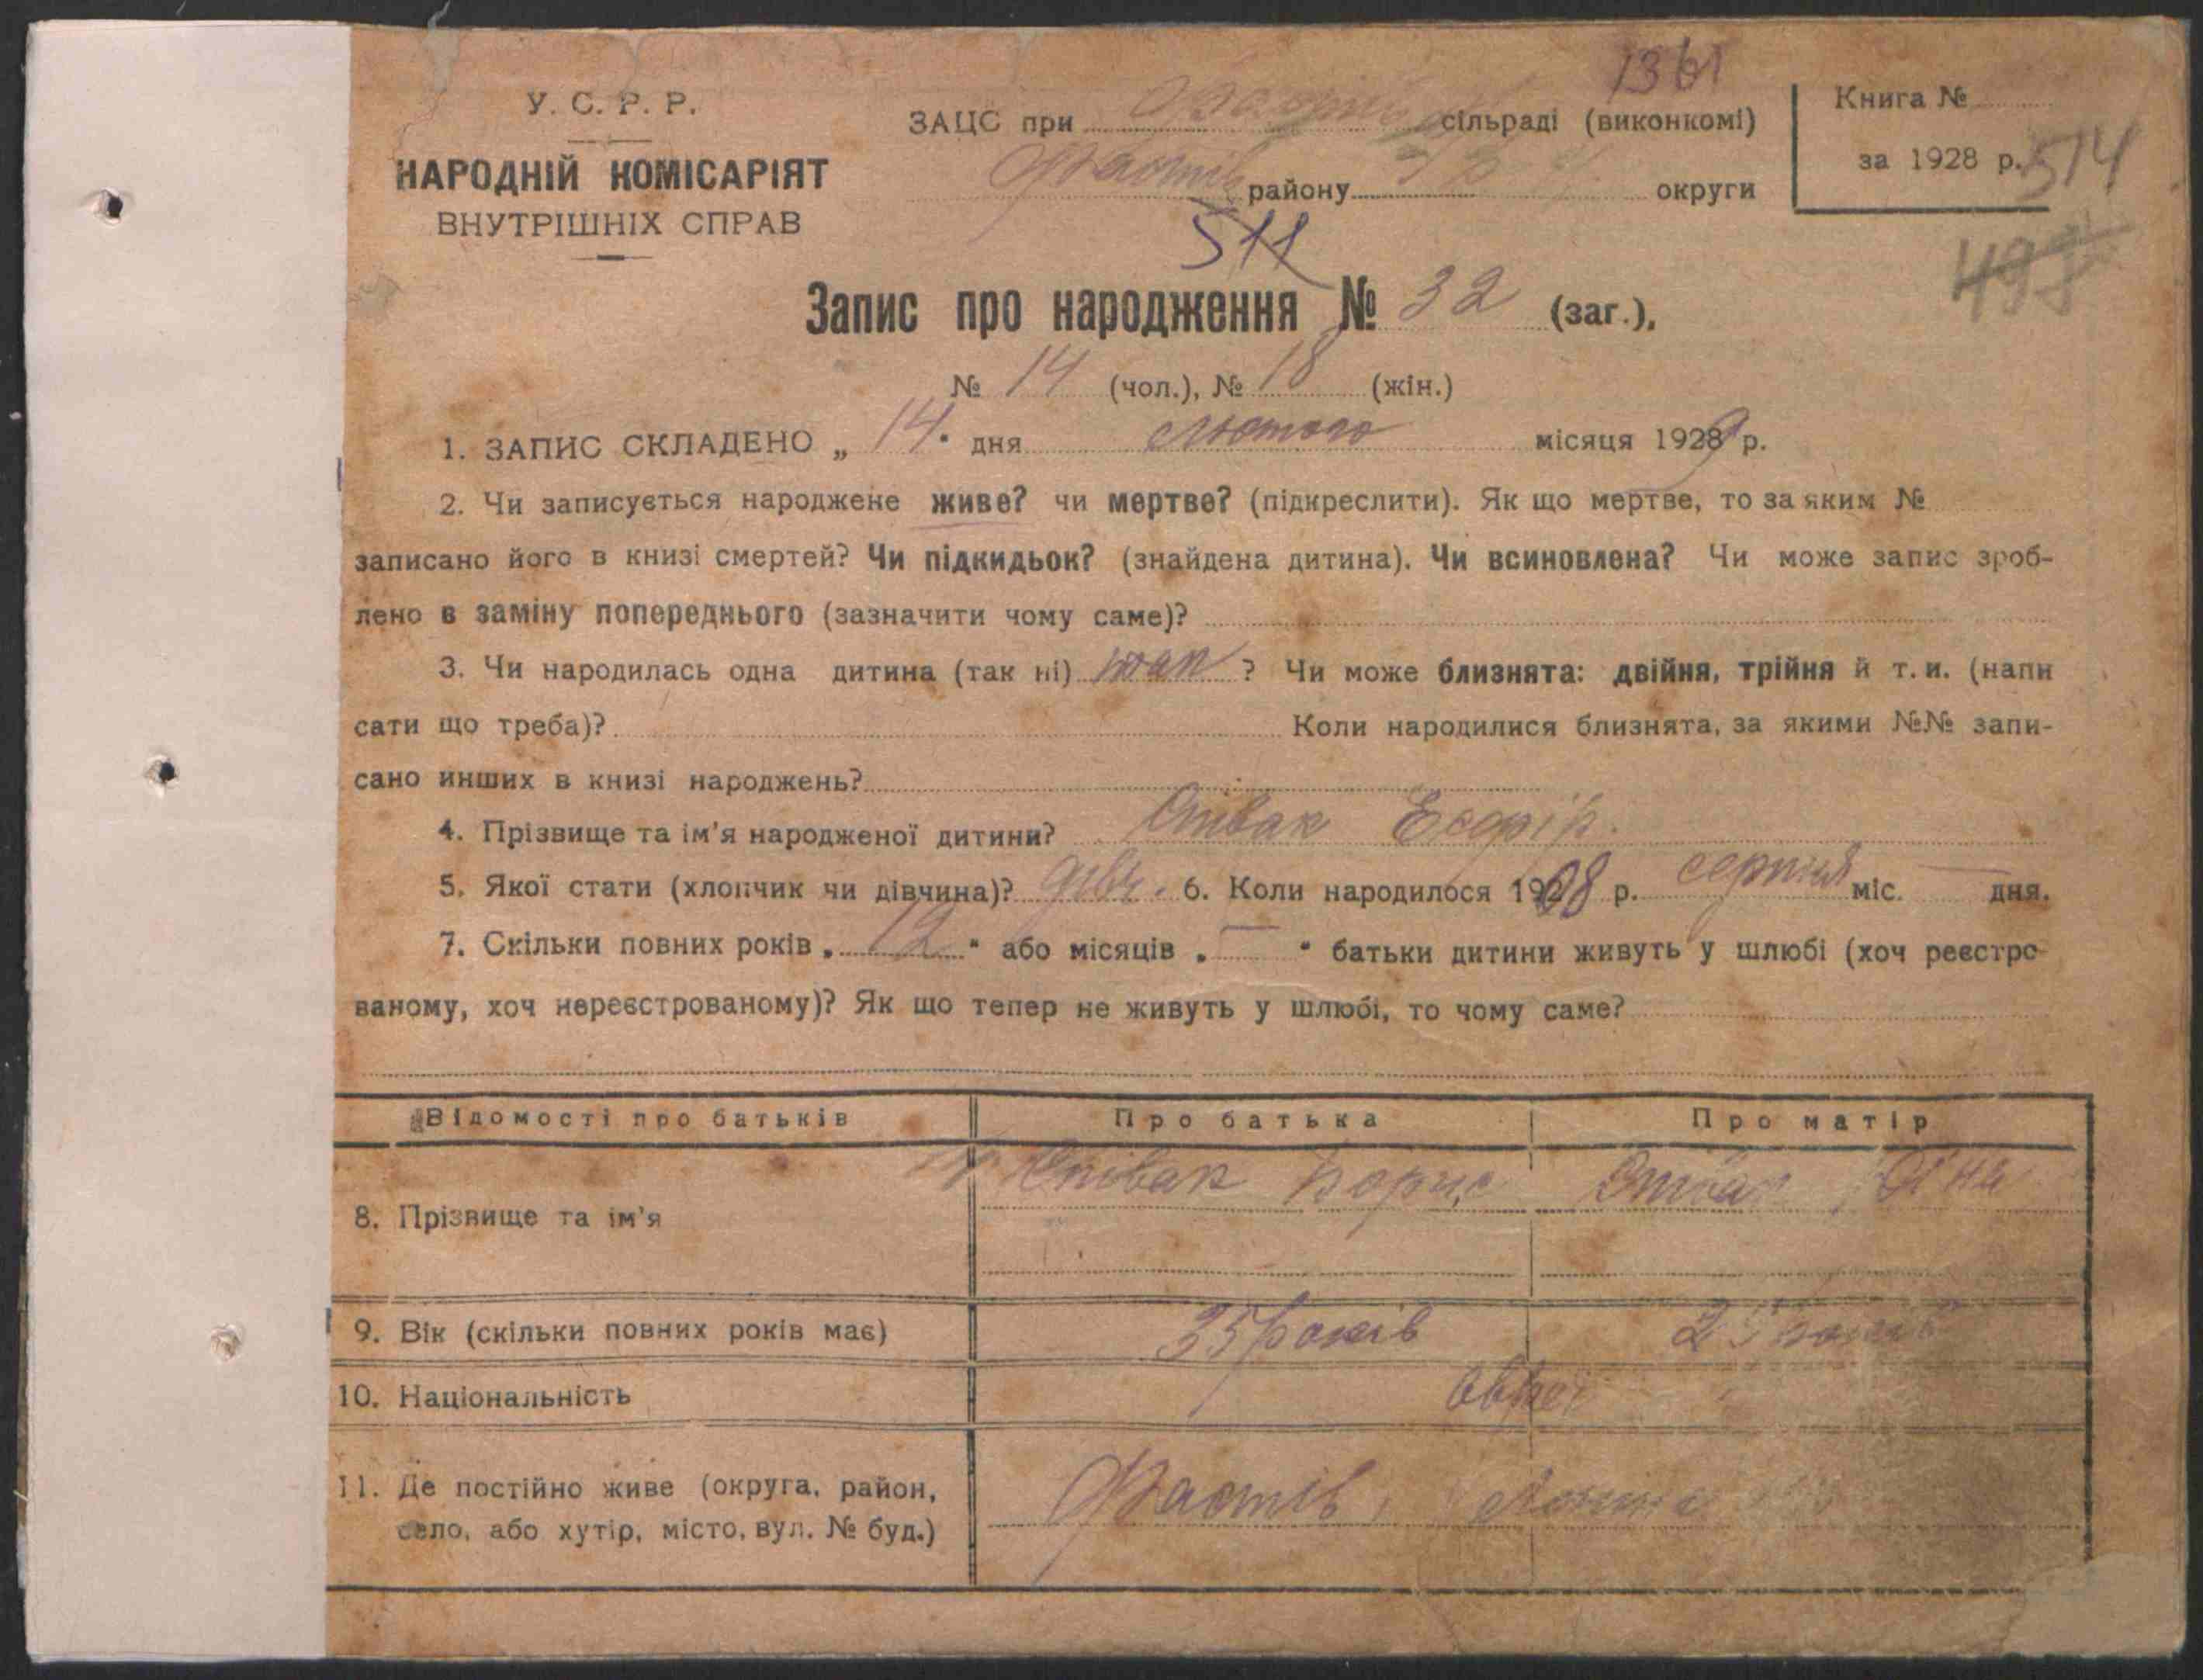 1361
У. С. Р. Р.
НАРОДНІЙ КОМІСАРІЯТ
ВНУТРІШНІХ СПРАВ
ЗАЦС при сільраді (виконкомі)
Фастів району округи
Книга №
за 1928 р. 514
511
498
Запис про народження № 32 (заг.),
№ 14 (чол.), № 18 (жін.)
1. ЗАПИС СКЛАДЕНО „ 14 " дня лютого місяця 1929 р.
2. Чи записується народжене живе? чи мертве? (підкреслити). Як що мертве, то за яким №
записано його в книзі смертей? Чи підкидьок? (знайдена дитина). Чи всиновлена? Чи може запис зроб-
лено в заміну попереднього (зазначити чому саме)?
3. Чи народилась одна дитина (так ні) так ? Чи може близнята: двійня, трійня й т. и. (напи
сати що треба)? Коли народилися близнята, за якими №№ запи-
сано инших в книзі народжень?
4. Прізвище та ім'я народженої дитини? Співак Есфір.
5. Якої стати (хлопчик чи дівчина)? дівч. 6. Коли народилося 1908 р. серпня міс. — дня.
7. Скільки повних років „ 12 " або місяців „ — " батьки дитини живуть у шлюбі (хоч реєстро-
ваному, хоч нереєстрованому)? Як що тепер не живуть у шлюбі, то чому саме?
Відомості про батьків Про батька Про матір
8. Прізвище та ім'я Співак Борис Співак
9. Вік (скільки повних років має) 35 років 25 років
10. Національність євреї
11. Де постійно живе (округа, район, Фастів,
село, або хутір, місто, вул. № буд.)